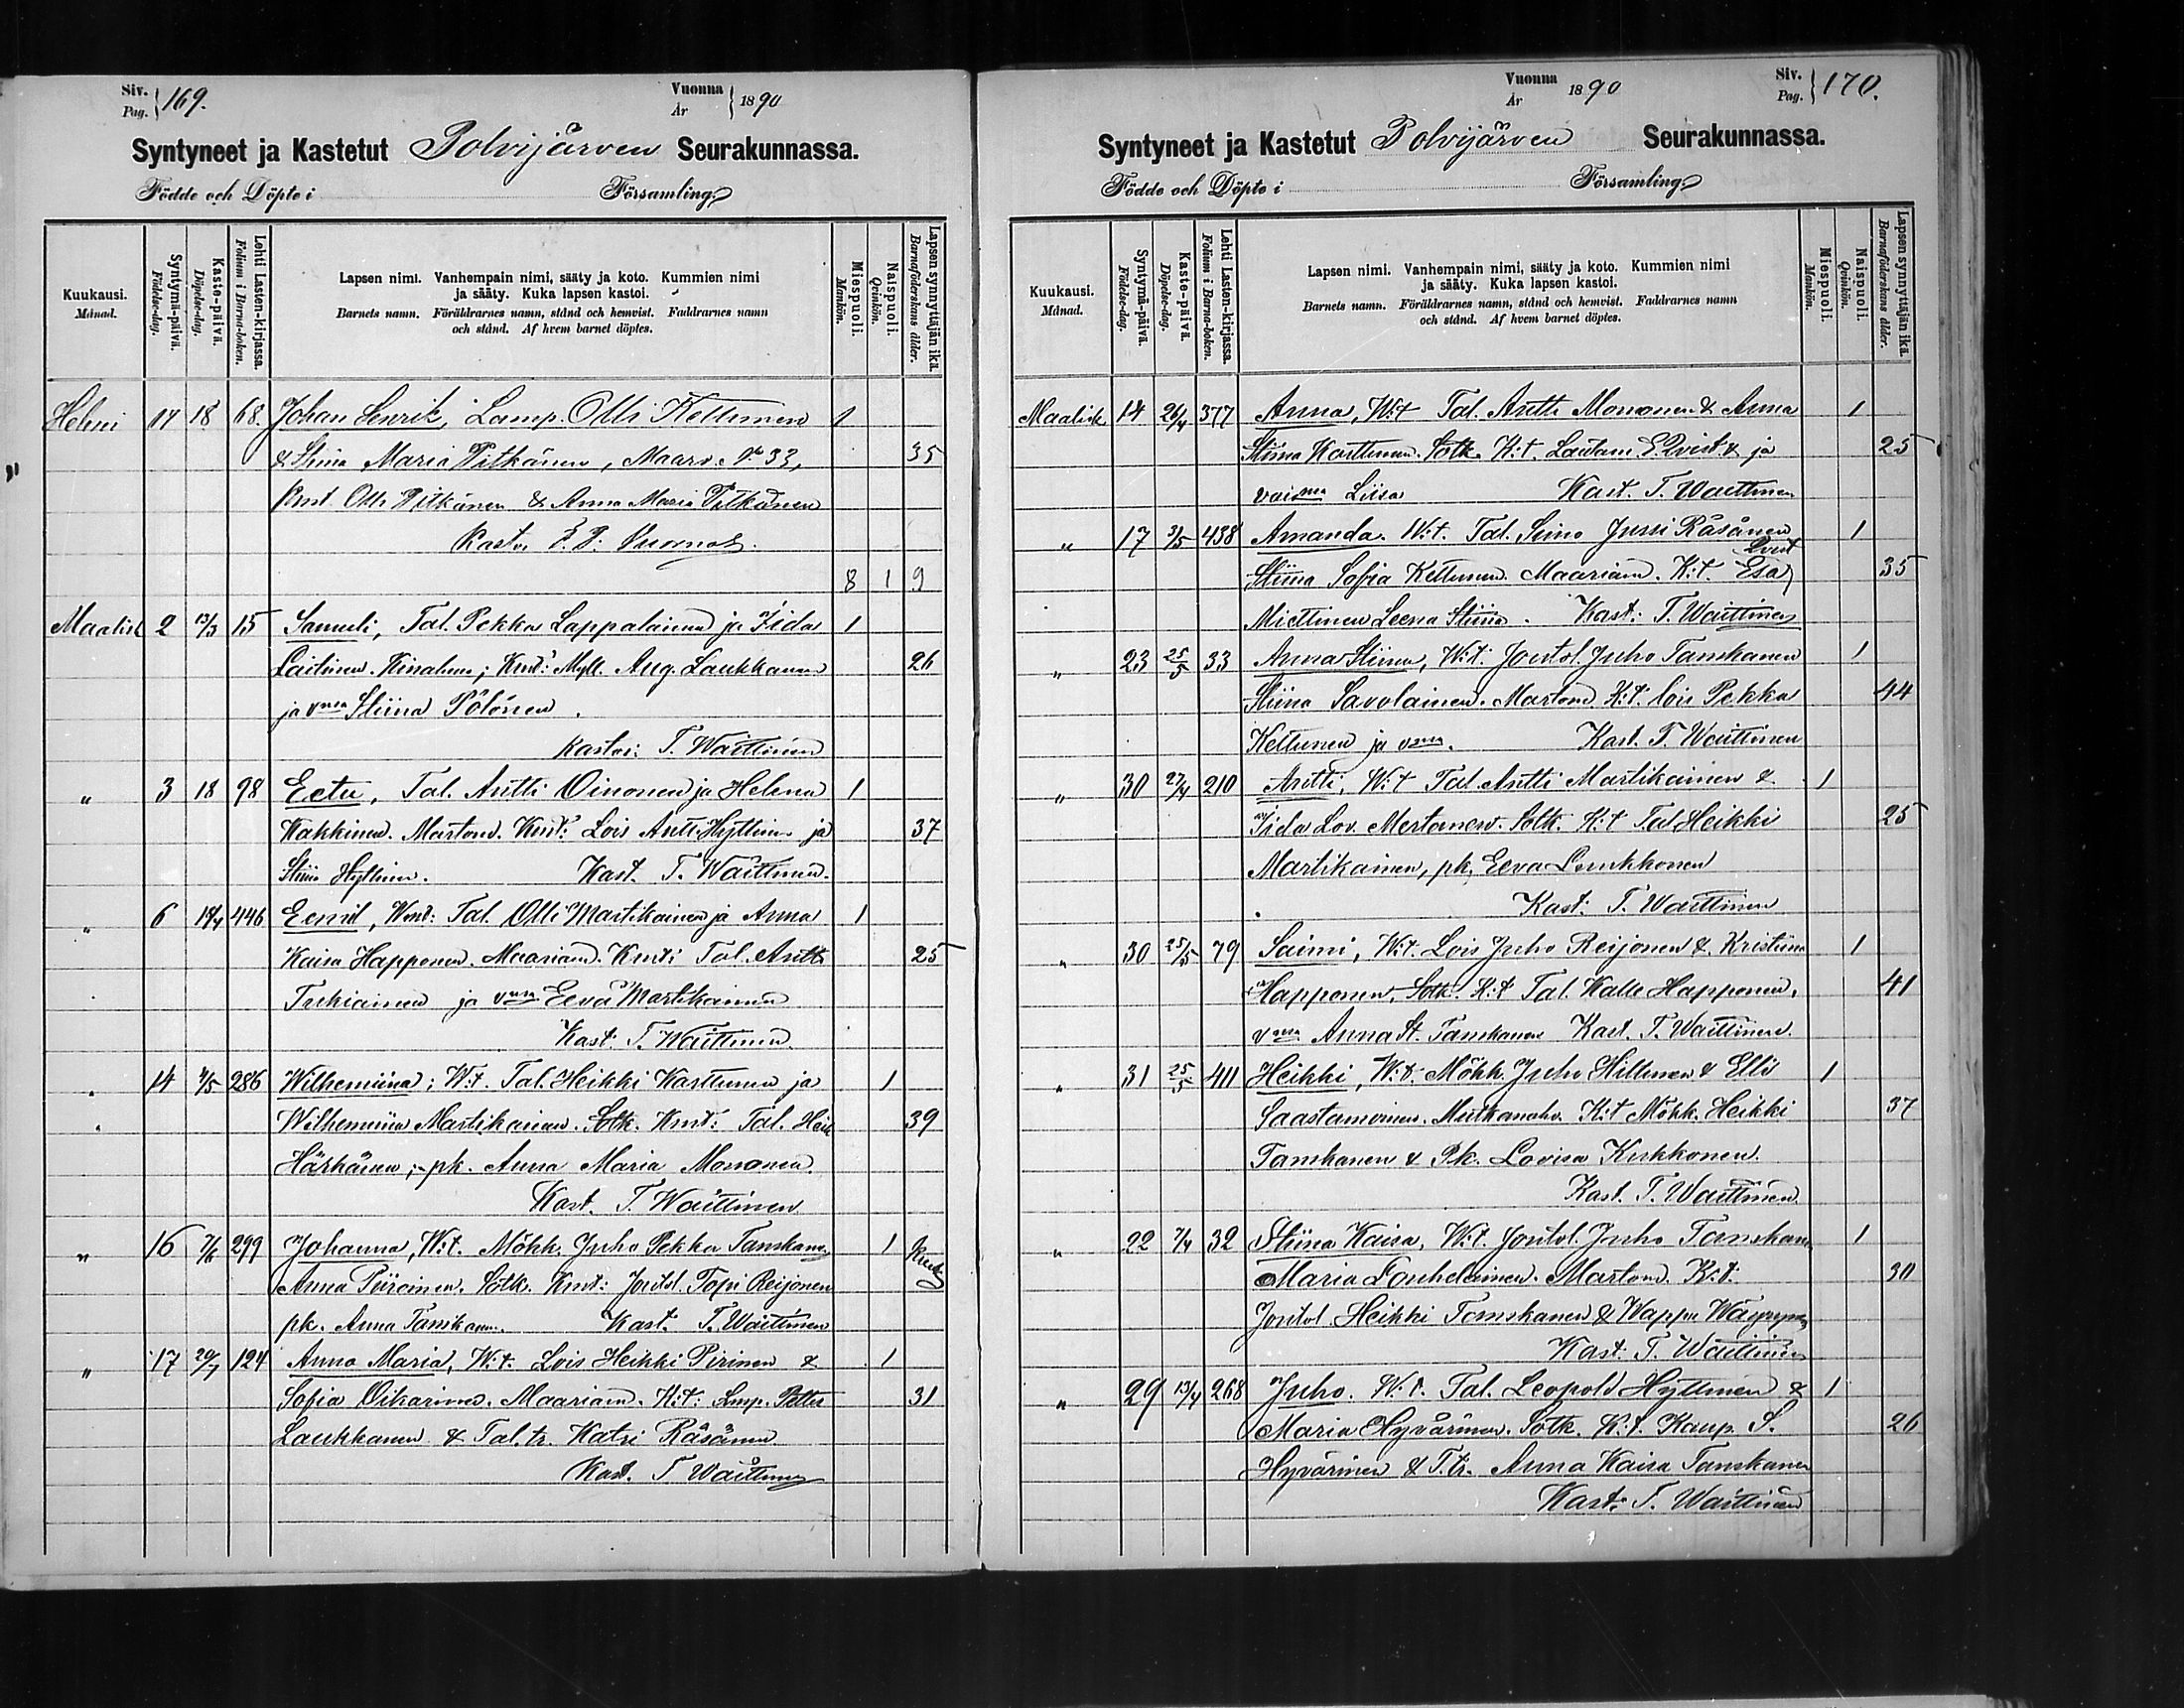 Siv. Pag. 169.
Vuonna År 1890
Syntyneet ja Kastetut Polvijärven Seurakunnassa.
Födde och Döpte i Församling.
Kuukausi. Månad.
Syntymä-päivä. Födelse-dag.
Kaste-päivä. Döpelse-dag.
Lehti Lasten-kirjassa. Folium i Barna-boken.
Lapsen nimi. Vanhempain nimi, sääty ja koto. Kummien nimi
ja sääty. Kuka lapsen kastoi.
Barnets namn. Föräldrarnes namn, stånd och hemvist. Faddrarnes namn
och stånd. Af hvem barnet döptes.
Miespuoli. Mankön.
Naispuoli. Qvinkön.
Lapsen synnyttäjän ikä. Barnaföderskans ålder.
Helmi 14 18 68. Johan Henrik, Lamp. Olli Kettunen 1
& Stina Maria Pitkänen, Maarv. No 33, 35
Kmt. Olli Pitkänen & Anna Maria Pitkänen
Kast.
8 1 9
Maalisk 2 13/3 15 Samueli, Tal. Pekka Lappalainen ja Iida 1
Laitinen. Kinahm; Kmt: Myll. Aug. Laukkanen 26
ja vmsa Stiina Pölönen.
Kastoi: T. Waittinen
" 3 18 98 Eetu, Tal. Antti Oinonen ja Helena 1
Kakkinen. Marton. Kmt: Lois Antti Hyttinen ja 37
Stiina Hyttinen. Kast. T. Waittinen.
" 6 446 Eemil, Wmt: Tal. Olli Martikainen ja Anna 1
Kaisa Happonen. Maarian. Kmt: Tal. Antti 25
Turkiainen ja vmsa Eeva Martikainen
Kast. T. Waittinen.
" 14 4/5 286 Wilhemiina; W:t. Tal. Heikki Karttunen ja 1
" Wilhemiina Martikainen. Sotk. Kmt: Tal. Heik 39
Härkänen; pk. Anna Maria Mononen.
Kast. T. Waittinen
" 16 7/6 299 Johanna, W:t. Mökk. Juho Pekka Tanskanen 1
Anna Piiroinen. Sotk. Kmt: Joutol. Topi Reijonen
pk. Anna Tanskanen. Kast. T. Waittinen
" 17 20/7 124 Anna Maria, W:t. Lois Heikki Pirinen & 1
Sofia Oikarinen. Maarian. K:t: Lmp. Petter 31
Laukkanen & Tal. tr. Katri Räsänen
Kast. T Waittinen
Siv. Pag. 170.
Vuonna År 1890
Syntyneet ja Kastetut Polvijärven Seurakunnassa.
Födde och Döpte i Församling.
Kuukausi. Månad.
Syntymä-päivä. Födelse-dag.
Kaste-päivä. Döpelse-dag.
Lehti Lasten-kirjassa. Folium i Barna-boken.
Lapsen nimi. Vanhempain nimi, sääty ja koto. Kummien nimi
ja sääty. Kuka lapsen kastoi.
Barnets namn. Föräldrarnes namn, stånd och hemvist. Faddrarnes namn
och stånd. Af hvem barnet döptes.
Miespuoli. Mankön.
Naispuoli. Qvinkön.
Lapsen synnyttäjän ikä. Barnaföderskans ålder.
Maalisk 14 26/4 377 Anna, W:t Tal. Antti Mononen & Anna 1
Stiina Karttunen. Sotk. K:t. Lautam. E. Qvist & ja 25
vaimsa Liisa Kast. T. Waittinen
" 17 3/5 438 Amanda. W:t. Tal. Simo Jussi Räsänen 1
Qvist
Stiina Sofia Kettunen. Maarian. K:t. Esa 35
Miettinen Leena Stiina. Kast: T. Waittinen
" 23 25/5 33 Anna Stiina, W:t: Joutol. Juho Tanskanen 1
Stiina Savolainen. Marton. K:t: lois Pekka 44
Kettunen ja vmsa. Kast. T. Waittinen
" 30 27/4 210 Antti, W:t Tal. Antti Martikainen & 1
Iida Lov. Mertanen. Sotk. K:t Tal Heikki 25
Martikainen, pk, Eeva Leukkonen
Kast: T. Waittinen
" 30 25/5 79 Saimi, W:t. Lois Juho Reijonen & Kristiina 1
Happonen. Sotk. K:t Tal. Kalle Happonen, 41
vmsa Anna St. Tanskanen Kast. T. Waittinen.
" 31 25/5 411 Heikki, W:t. Mökk. Juho Hiltunen & Elli 1
Saastamoinen. Mutkanaho. K:t Mökk. Heikki 37
Tanskanen & Pk. Lovisa Kukkonen.
Kast. T. Waittinen.
" 22 7/4 32 Stiina Kaisa, W:t. Joutol. Juho Tanskanen 1
Maria Louhelainen. Marton. K:t. 30
Joutol Heikki Tanskanen & Wappu
Kast. T. Waittinen
" 29 13/4 268 Juho. W:t. Tal. Leopold Hyttinen & 1
Maria Hyvärinen. Sotk. K:t. Kaup. S. 26
Hyvärinen & T. tr. Anna Kaisa Tanskanen
Kast: T. Waittinen